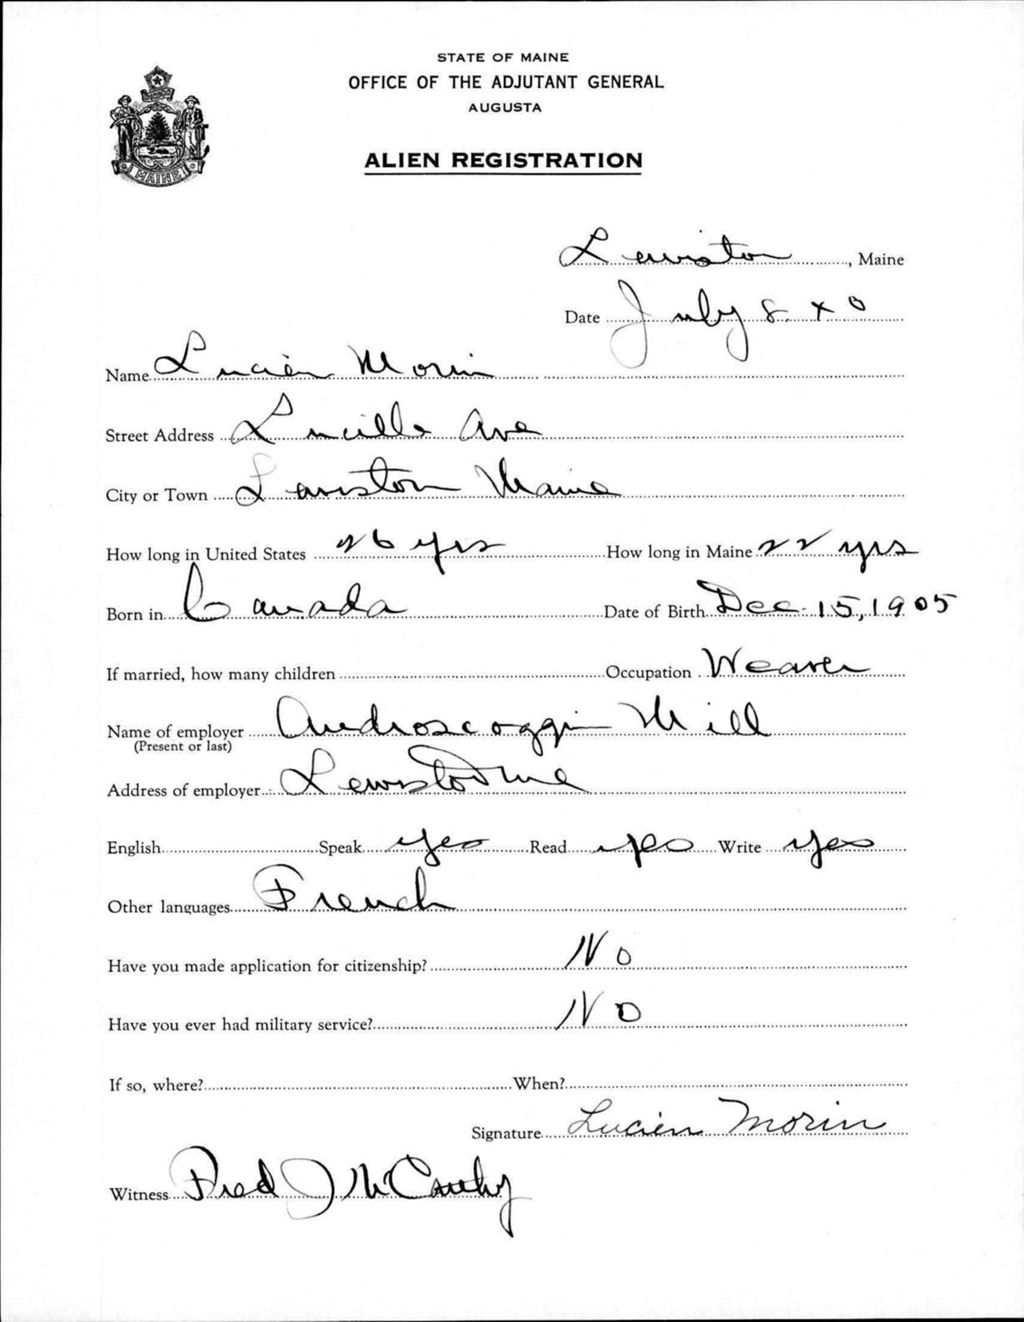 STATE OF MAINE
OFFICE OF THE ADJUTANT GENERAL
AUGUSTA
ALIEN REGISTRATION
MAINE
Lewiston, Maine
Date July 8 40
Name Lucien Morin
Street Address Lucille Ave
City or Town Lewiston Maine
How long in United States 26 yrs How long in Maine 22 yrs
Born in Canada Date of Birth Dec 15, 1905
If married, how many children Occupation Weaver
Name of employer Androscoggin Mill
(Present or last)
Address of employer Lewiston Me
English Speak yes Read yes Write yes
Other languages French
Have you made application for citizenship? No
Have you ever had military service? No
If so, where? When?
Signature Lucien Morin
Witness Fred J McCarthy